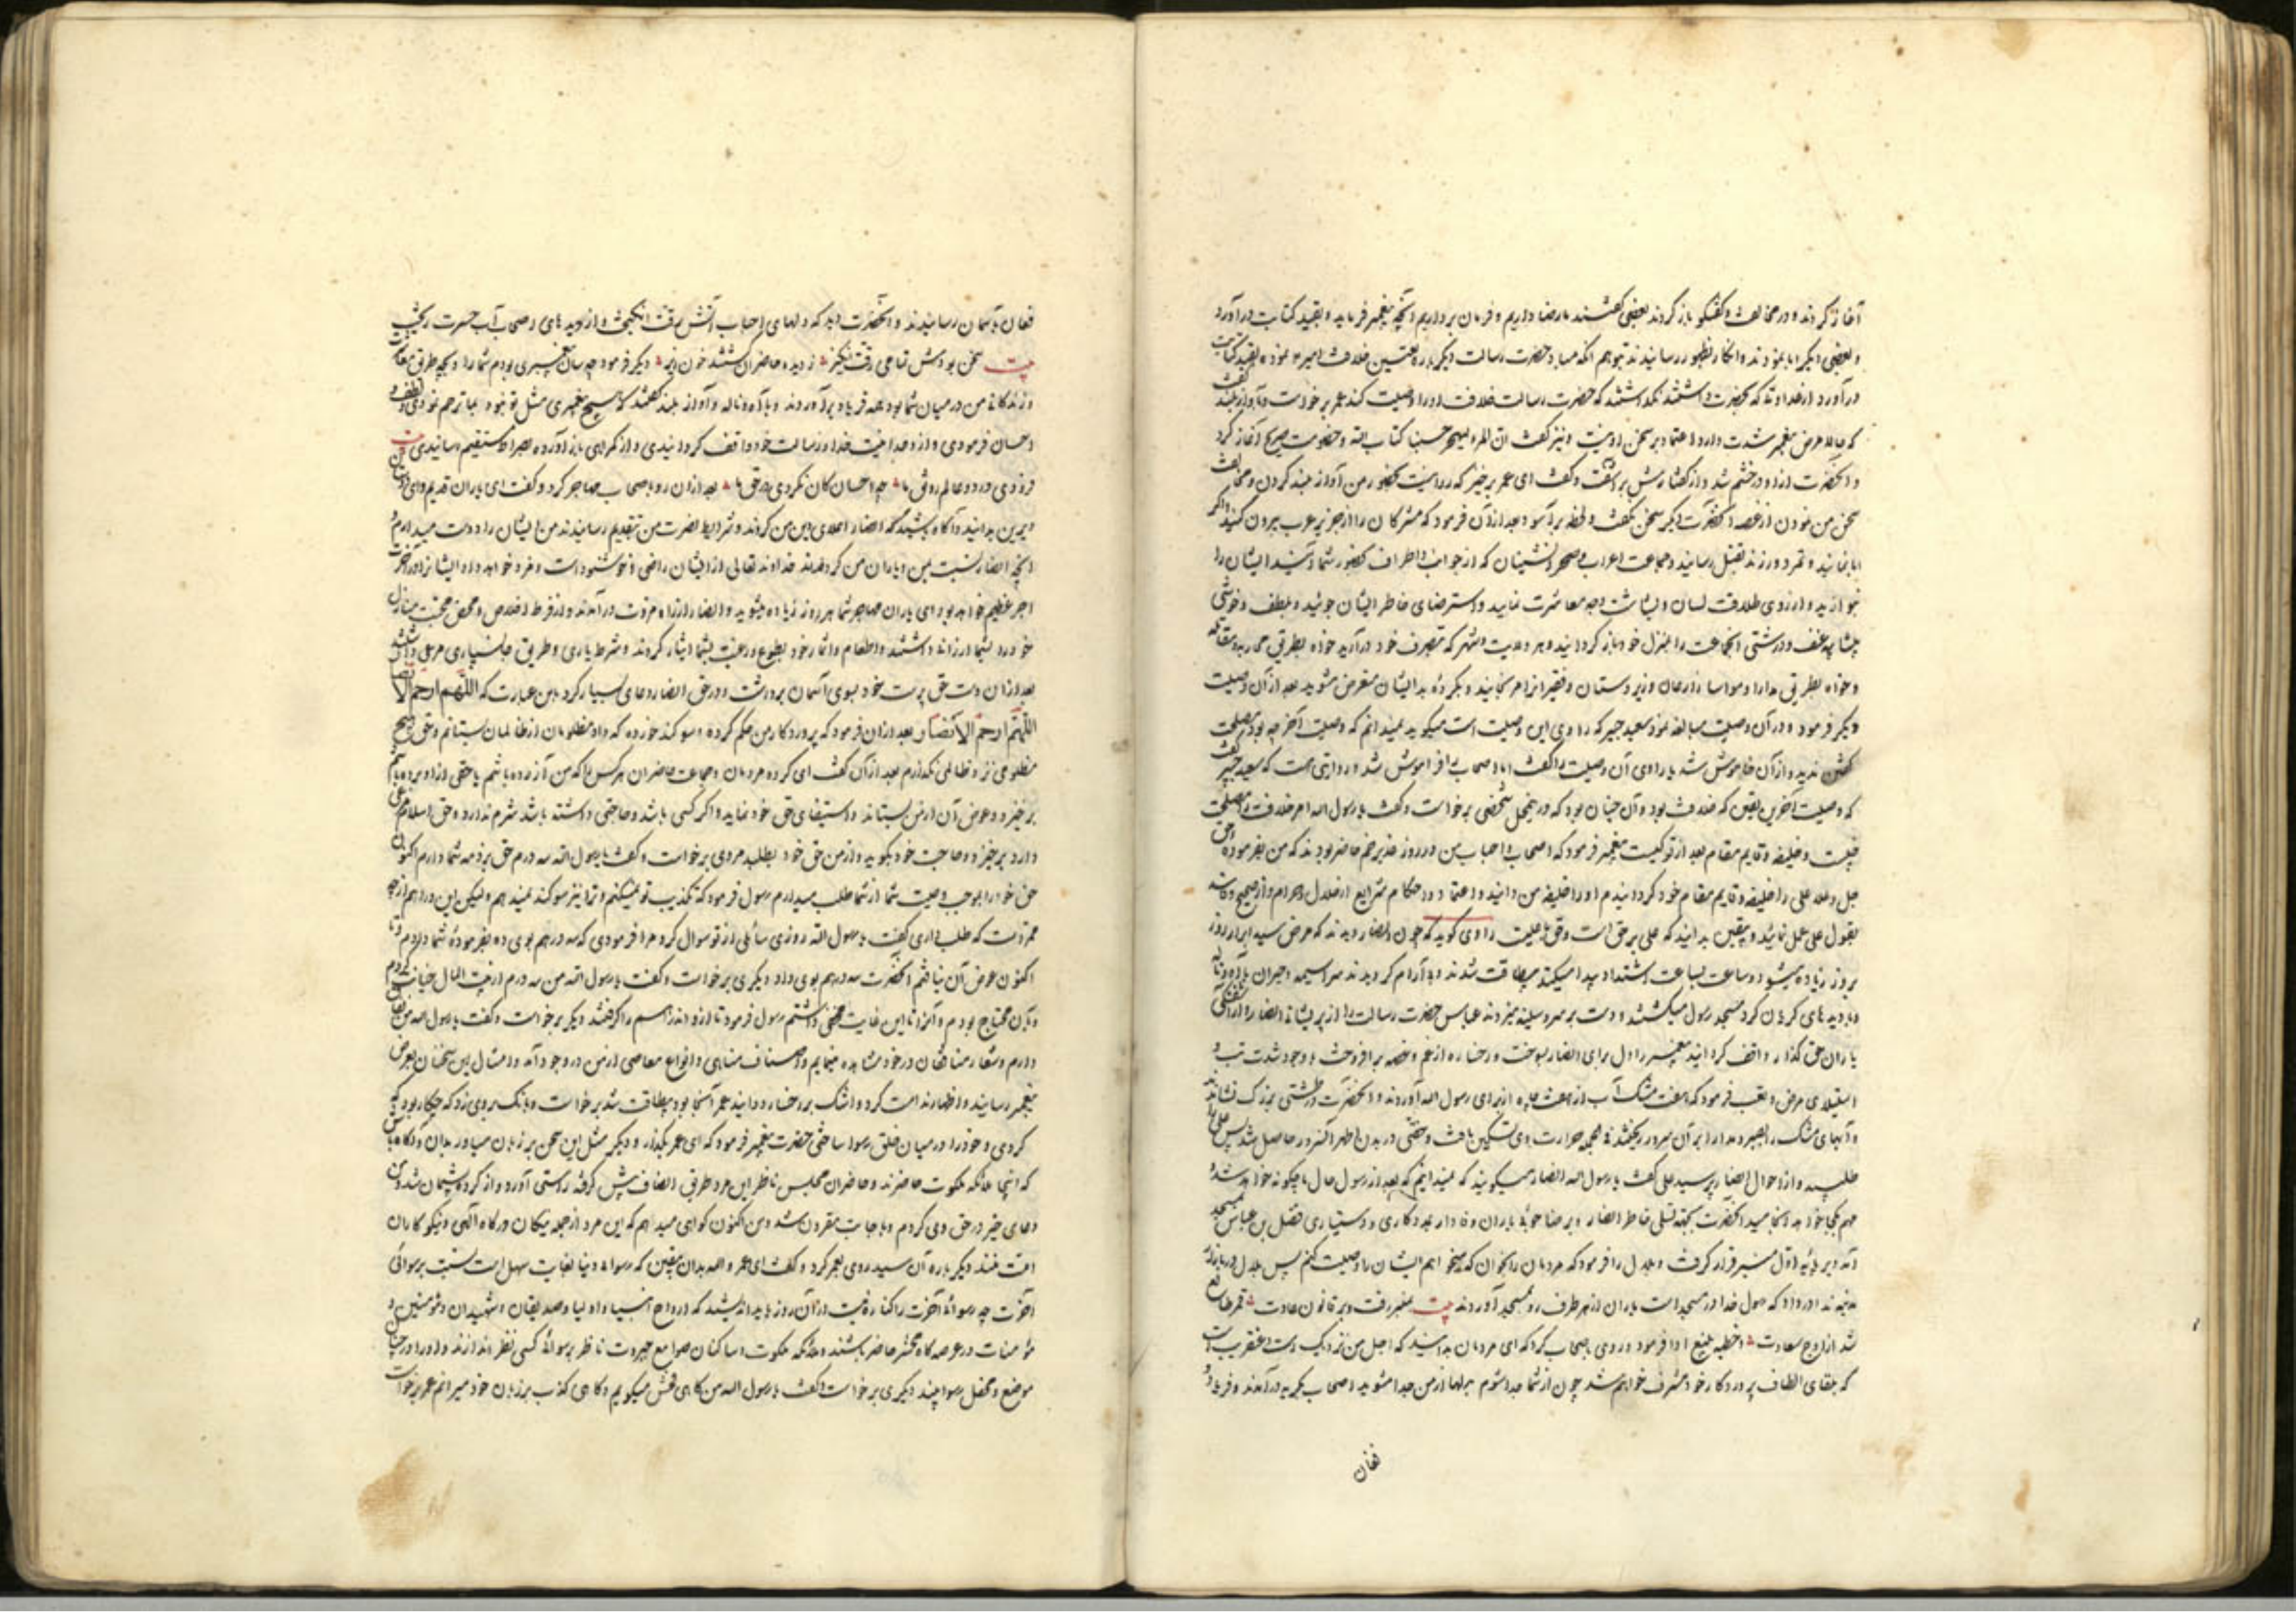 آغاز کردند و در مخالفت و گفتگو باز کردند بعضی گفتند ما رضا داریم و فرمان برداریم آنچه پیغمبر فرماید و بقید کتابت درآورد
و بعضی دیگر ابا نمودند و انکار بظهور رسانیدند بتوهم آنکه مبادا حضرت رسالت دیگر باره تعیین خلافت امیر نموده بقید کتابت
درآورد حضرت رسالت خلافت او را وصیت کند عمر برخواست و بآواز بلند گفت
که حالا مرض پیغمبر شدت دارد اعتماد بر سخن او نیست و نیز گفت ان المرء لیهجر حسبنا کتاب الله و خصومت صریح آغاز کرد
و آنحضرت ازو در خشم شد و از گفتارش برآشفت و گفت ای عمر برخیز که روا نیست بحضور من آواز بلند کردن و مخالفت
سخن من نمودن از غصه آنحضرت دیگر سخن نگفت و لحظه برآسود بعد از آن فرمود که مشرکان را از جزیره عرب بیرون کنید و اگر
ابا نمایند و تمرد ورزند بقتل رسانید و جماعت اعراب و صحرانشینان که از جوانب و اطراف بحضور شما آیند ایشان را
بنوازید و از روی طلاقت لسان و بشاشت وجه معاشرت نمایید و استرضای خاطر ایشان جوئید و بلطف و خوشی
عنف و درشتی آنجماعت را بمنزل خود باز گردانید و هر ولایت و شهر که بتصرف خود درآرید خواه بطریق محاربه و مقاتله
و خواه بطریق مدارا و مواسا زارعان و زیردستان و فقیران را نرنجانید و بکرده بد ایشان متعرض مشوید بعد از آن وصیت
دیگر فرمود و در آن وصیت مبالغه نمود سعید جبیر که راوی این وصیت است میگوید نمیدانم که وصیت آخر چه بود مصلحت
گفتن ندید و از آن خاموش شد یا راوی آن وصیت را گفت اما اصحاب را فراموش شد و روایتی هست که سعید جبیر گفت
که وصیت آخرین یقین که خلافت بود و آن چنان بود که در محل شخصی برخواست و گفت یا رسول الله امر خلافت را مصلحت
چیست و خلیفه و قایم مقام بعد از تو کیست پیغمبر فرمود که اصحاب و احباب من در روز غدیر خم حاضر بودند که من بفرموده حق
جل و علا علی را خلیفه و قایم مقام خود گردانیدم او را خلیفه من دانید و اعتماد در احکام شرایع از حلال و حرام و از صحیح و فاسد
بقول علی عمل نمائید و بیقین بدانید که علی بر حق است و حق با علیست راوی گوید که چون انصار دیدند که مرض سید ابرار روز
بروز زیاده میشود و ساعت بساعت اشتداد پیدا میکند بیطاقت شدند و بی آرام گردیدند سراسیمه و حیران با آه و ناله
و با دیده های گریان گرد مسجد رسول میگشتند و دست بر سر و سینه میزدند عباس حضرت رسالت را از پریشانی انصار و
یاران حق گذار واقف گردانید پیغمبر را دل برای انصار بسوخت و رخساره از غم و غصه برافروخت با وجود شدت تب و
استیلای مرض و تعب فرمود که هفت مشک آب از هفت چاه از برای رسول الله آوردند و آنحضرت در طشتی بزرگ نشاند
و آبهای مشک را بر آن سرور ریختند فی الجمله حرارت بدن تسکین یافت و خفتی در بدن اطهر آن سرور حاصل شد پس علی را
طلبید و از احوال انصار پرسید علی گفت یا رسول الله انصار میگویند که نمیدانیم که بعد از رسول حال ما چگونه خواهد شد و
مهم بکجا خواهد انجامید آنحضرت بجهت تسلی خاطر انصار و رضا جوئی یاران وفادار بمددکاری و دستیاری فضل بن عباس بمسجد
آمد و بر پایه اول منبر قرار گرفت و بلال را فرمود که مردمان را بخوان که میخواهم ایشان را وصیت کنم پس بلال در بازار
مدینه ندا در داد که رسول خدا در مسجد است یاران از هر طرف رو بمسجد آوردند بیت بمنبر رفت و بر قانون عادت قمر طالع
شد از اوج سعادت و خطبه بلیغ ادا فرمود و روی باصحاب کرد که ای مردمان بدانید که اجل من نزدیک است و عنقریب
که بلقای الطاف پروردگار خود مشرف خواهم شد چون از شما جدا شوم بدلها از من جدا مشوید اصحاب بگریه درآمدند و فریاد و
فغان
فغان بآسمان رسانیدند و آنحضرت دید که دلهای احباب آتش رقت انگیخت و از دیده های اصحاب آب حسرت ریخت
بیت سخن بودش تمامی رقت انگیز ز دیده حاضران گشتند خون ریز دیگر فرمود چه سان پیغمبری بودم شما را و بچه طریق معاش
و زندگانی من در میان شما بود همه فریاد برآوردند و با آه و ناله و آواز بلند گفتند که هیچ پیغمبری مثل تو نبود بما ترحم نمودی و لطف و
احسان فرمودی و از وحدانیت خدا و رسالت خود واقف گردانیدی و از گمراهی باز آورده بصراط مستقیم رسانیدی بیت
فزودی در دو عالم رونق ما چه احسان کان نکردی در حق ما بعد از آن رو باصحاب مهاجر کرد و گفت ای یاران قدیم و ای
دیرین بدانید و آگاه باشید که انصار اعلای دین من کردند و شرایط نصرت من بتقدیم رسانیدند من ایشان را دوست میدارم و
آنچه انصار نسبت بمن و یاران من کرده اند خداوند تعالی از ایشان راضی و خوشنود است و مزد خواهد داد ایشان را در آخرت
اجر عظیم خواهد بود ای یاران مهاجر شما هر روز زیاده میشوید و انصار از راه مروت درآمدند و از فرط اخلاص و محض محبت منازل
خود را بشما ارزانی داشتند و اطعام و اثمار خود بطوع و رغبت بشما ایثار کردند و شرط یاری و طریق جانسپاری مرعی داشتند
بعد از آن دست حق پرست خود بسوی آسمان برداشت و در حق انصار دعای بسیار کرد باین عبارت که اللهم ارحم الانصار
اللهم ارحم الانصار بعد از آن فرمود که پروردگار من حکم کرده و سوگند خورده که داد مظلومان از ظالمان بستانم و حق هیچ
مظلومی نزد ظالمی نگذارم بعد از آن گفت ای گروه مردمان و جماعت حاضران هر کس را که من آزرده باشم یا حقی از او برده باشم
برخیزد و عوض آن از من بستاند و استیفای حق خود نماید و اگر کسی باشد و حاجتی داشته باشد شرم ندارد و حق اسلام مرعی
دارد برخیزد و حاجت خود بگوید و از من حق خود بطلبد مردی برخواست و گفت یا رسول الله سه درم حق بر ذمه شما دارم اکنون
حق خود را بموجب وصیت شما از شما طلب میدارم رسول فرمود که تکذیب تو نمیکنم و ترا نیز سوگند نمیدهم ولیکن این دراهم از چه
ممر است که طلب داری گفت یا رسول الله روزی سائلی از تو سوال کرد مرا فرمودی که سه درهم بوی ده بفرموده شما دادم و تا
اکنون عوض آن نیافتم آنحضرت سه درهم بوی داد دیگری برخواست و گفت یا رسول الله من سه درم از بیت المال خیانت کردم
و بآن محتاج بودم و آنرا تا این غایت مخفی داشتم رسول فرمود تا ازو آن دراهم را گرفتند دیگر برخواست و گفت یا رسول الله من
دارم و شعار منافقان در خود مشاهده مینمایم و اصناف مناهی و انواع معاصی از من در وجود آمد و امثال این سخنان بعرض
پیغمبر رسانید و اظهار ندامت کرد و اشک بر رخسار دوانید عمر آنجا بود بیطاقت شد برخواست و بانگ بر وی زد که چکار بود که
کردی و خود را در میان خلق رسوا ساختی حضرت پیغمبر فرمود که ای عمر بگذار و دیگر مثل این سخن بر زبان میاور بدان و آگاه باش
که اینجا ملائکه ملکوت حاضرند و حاضران مجلس ناظر این مرد طریق انصاف پیش گرفته راستی آورد و از کرده پشیمان شد و من
دعای خیر در حق وی کردم و باجابت مقرون شد و من اکنون گواهی میدهم که این مرد از جمله نیکان درگاه الهی و نیکوکاران
امت منند دیگر باره آن سید روی بعمر کرد و گفت ای عمر والله بدان بیقین که رسوائی دنیا بغایت سهل است نسبت برسوائی
آخرت چه رسوائی آخرت را کناره نیست در آن روز باید اندیشید که ارواح انبیا و اولیا و صدیقان و شهیدان و مؤمنین و
مؤمنات در عرصه گاه محشر حاضر باشند و ملائکه ملکوت و ساکنان صوامع جبروت ناظر برسوائی کسی نظر اندازند و او را در چنان
موضع و محفل رسوا بینند دیگری برخواست و گفت یا رسول الله من گاهی فحش میگویم و گاهی کذب بر زبان خود میرانم عمر برخواست